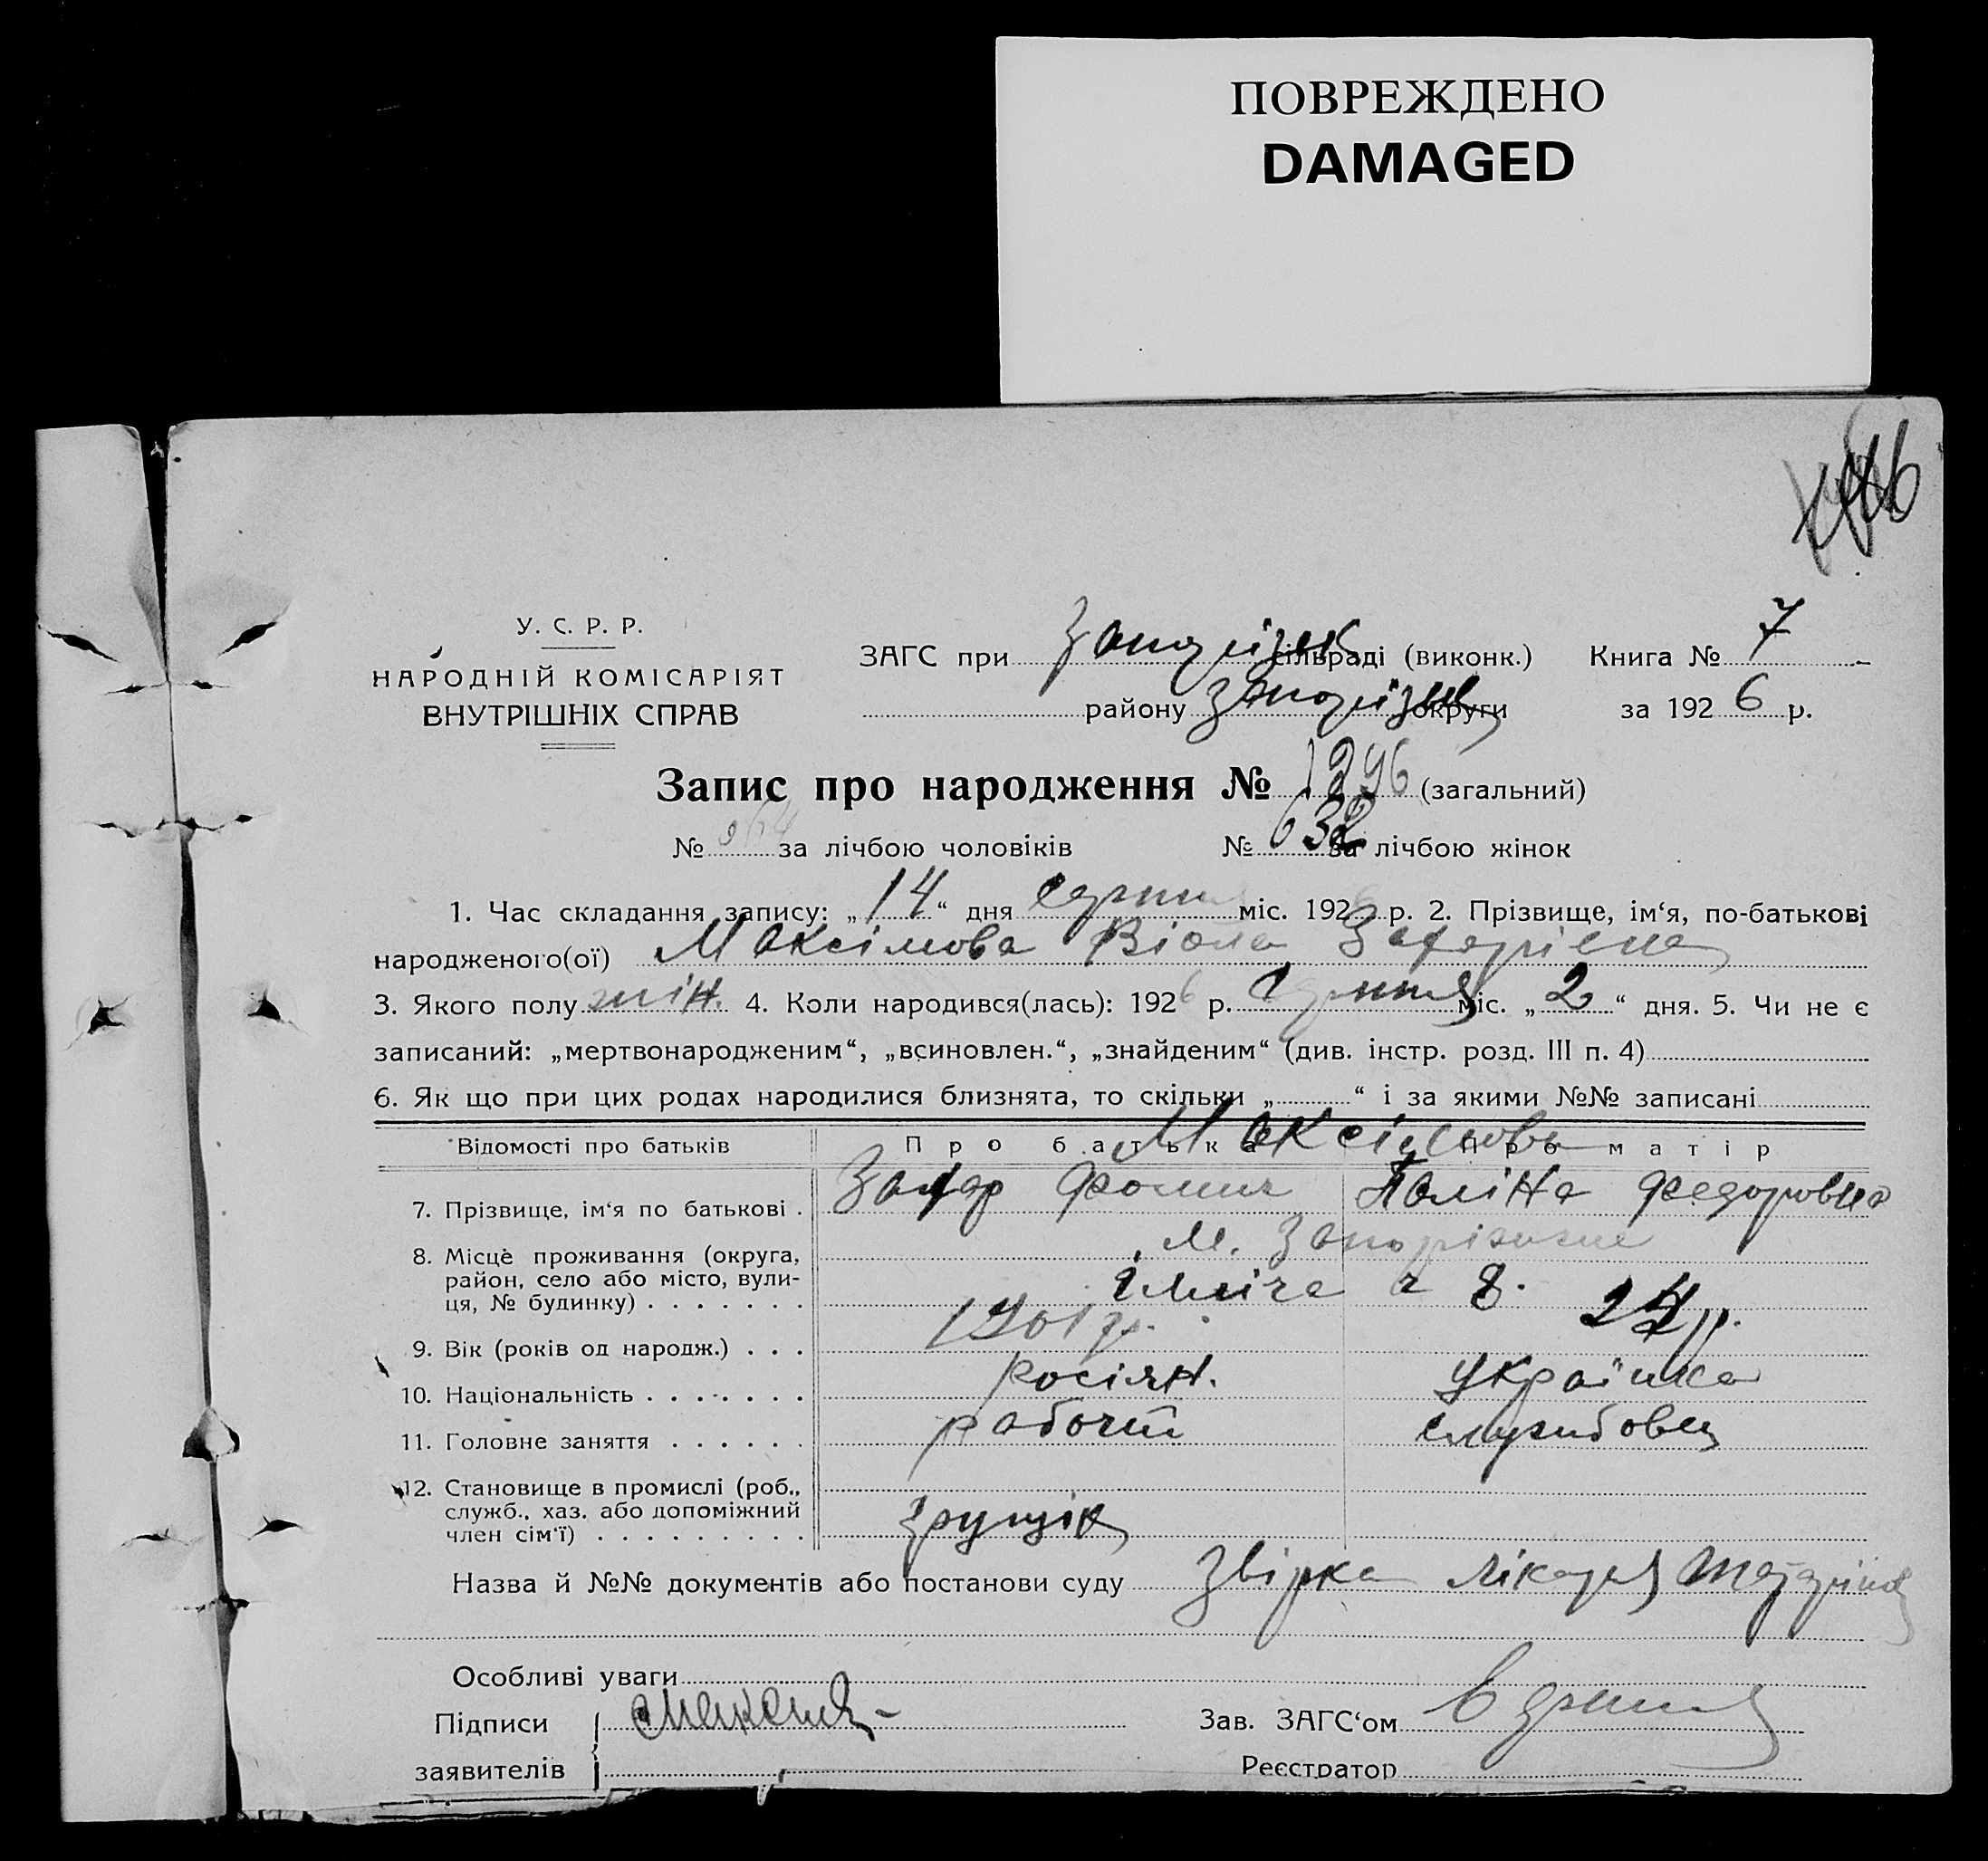 ПОВРЕЖДЕНО
DAMAGED
У. С. Р. Р.
НАРОДНІЙ КОМІСАРІЯТ
ВНУТРІШНІХ СПРАВ
ЗАГС при Запоріжж сільраді (виконк.) Книга № 7
району Запоріж округи за 1926 р.
Запис про народження № 1296 (загальний)
№ 664 за лічбою чоловіків № 632 за лічбою жінок
1. Час складання запису: „14“ дня серпня міс. 1926 р. 2. Прізвище, ім‘я, по-батькові
народженого(ої) Максімова Віола Захарієна
3. Якого полу жін. 4. Коли народився(лась): 1926 р. Серпня міс. „2“ дня. 5. Чи не є
записаний: „мертвонародженим“, „всиновлен.“, „знайденим“ (див. інстр. розд. III п. 4)
6. Як що при цих родах народилися близнята, то скільки „ “ і за якими №№ записані
Відомості про батьків Про батька Про матір
Максімови
7. Прізвище, ім‘я по батькові . Захар Фомич Паліна Федоровна
8. Місце проживання (округа,
район, село або місто, вули-
ця, № будинку) . . . . . . .
м. Запоріжжя
Ілліча 8.
9. Вік (років од народж.) . . . 1901 р. 24 р.
10. Національність . . . . . . . росіян. Українка
11. Головне заняття . . . . . . рабочій службовец
12. Становище в промислі (роб.,
служб., хаз. або допоміжний
член сім‘ї) . . . . . . . . . грущік
Назва й №№ документів або постанови суду Звірка лікаря
Особливі уваги
Підписи
заявителів
Зав. ЗАГС‘ом
Реєстратор